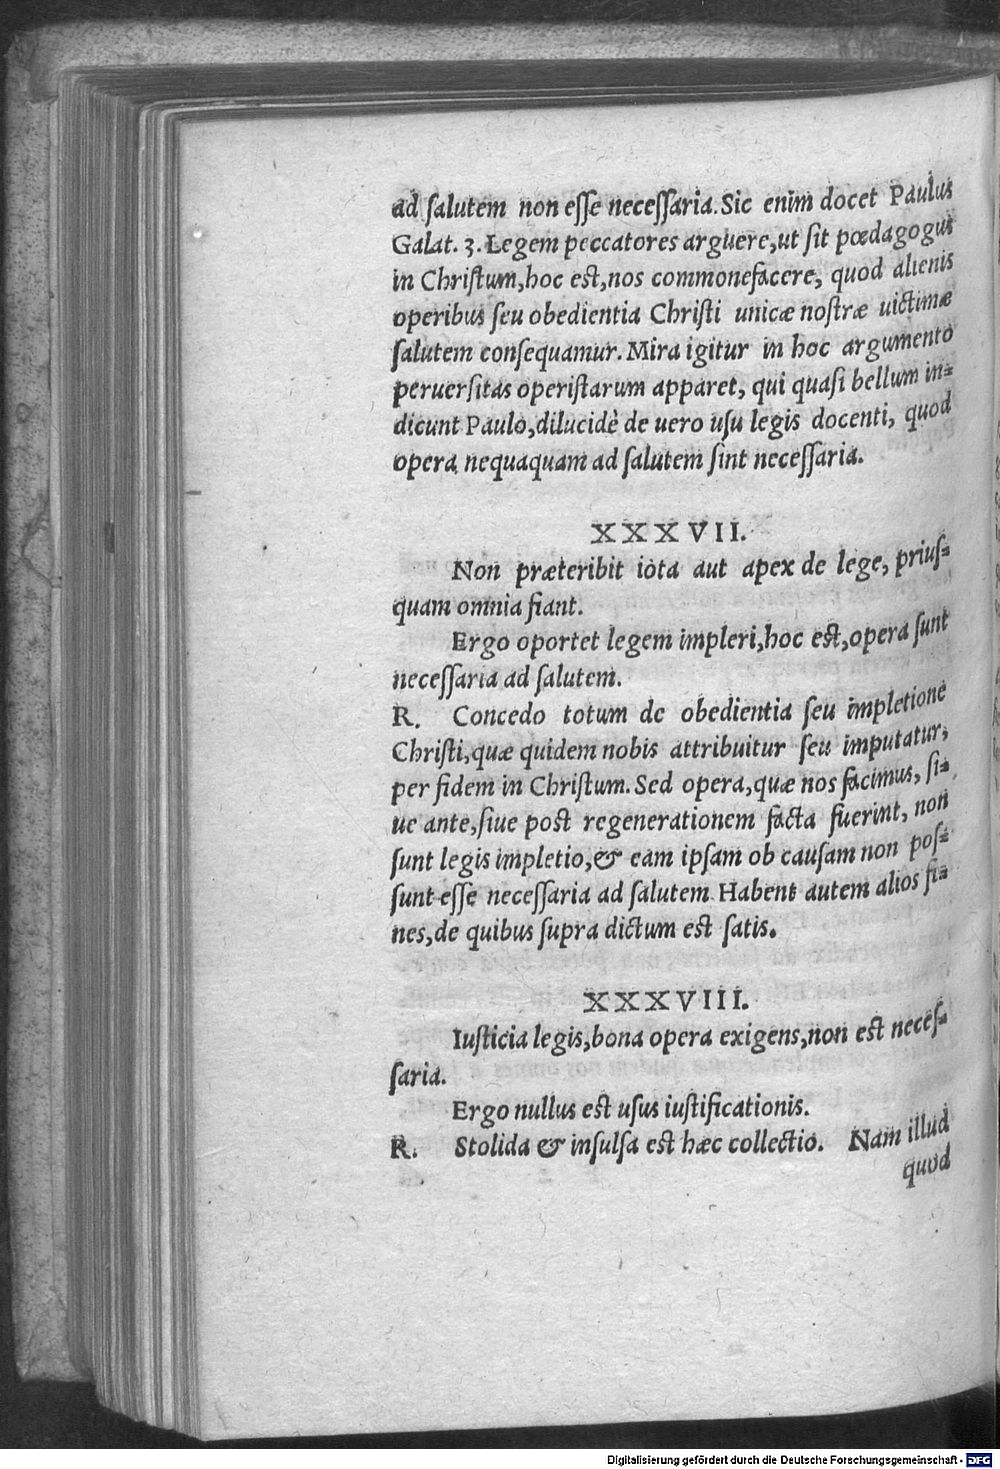 ad ſalutem non eſſe neceſſaria. Sic enim docet Paulus
Galat. 3. Legem peccatores arguere, ut ſit pœdagogus
in Chriſtum, hoc est, nos commonefacere, quod alienis
operibus ſeu obedientia Chriſti unicæ noſtræ uictimæ
ſalutem conſequamur. Mira igitur in hoc argumento
peruerſitas operiſtarum apparet, qui quaſi bellum in⸗
dicunt Paulo, dilucidè de uero uſu legis docenti, quod
opera nequaquam ad ſalutem ſint neceſſaria.
XXXVII.
Non præteribit iota aut apex de lege, priuſ⸗
quam omnia fiant.
Ergo oportet legem impleri, hoc est, opera ſunt
neceſſaria ad ſalutem.
R. Concedo totum de obedientia ſeu impletione
Chriſti, quæ quidem nobis attribuitur ſeu imputatur,
per fidem in Chriſtum. Sed opera, quæ nos facimus, ſi⸗
ue ante, ſiue post regenerationem facta fuerint, non
ſunt legis impletio, & eam ipſam ob cauſam non poſ⸗
ſunt eſſe neceſſaria ad ſalutem. Habent autem alios fi⸗
nes, de quibus ſupra dictum est ſatis.
XXXVIII.
Iuſticia legis, bona opera exigens, non est neceſ⸗
ſaria.
Ergo nullus est uſus iuſtificationis.
R. Stolida & inſulſa est hæc collectio. Nam illud
quod
Digitalisierung gefördert durch die Deutsche Forschungsgemeinschaft - DFG